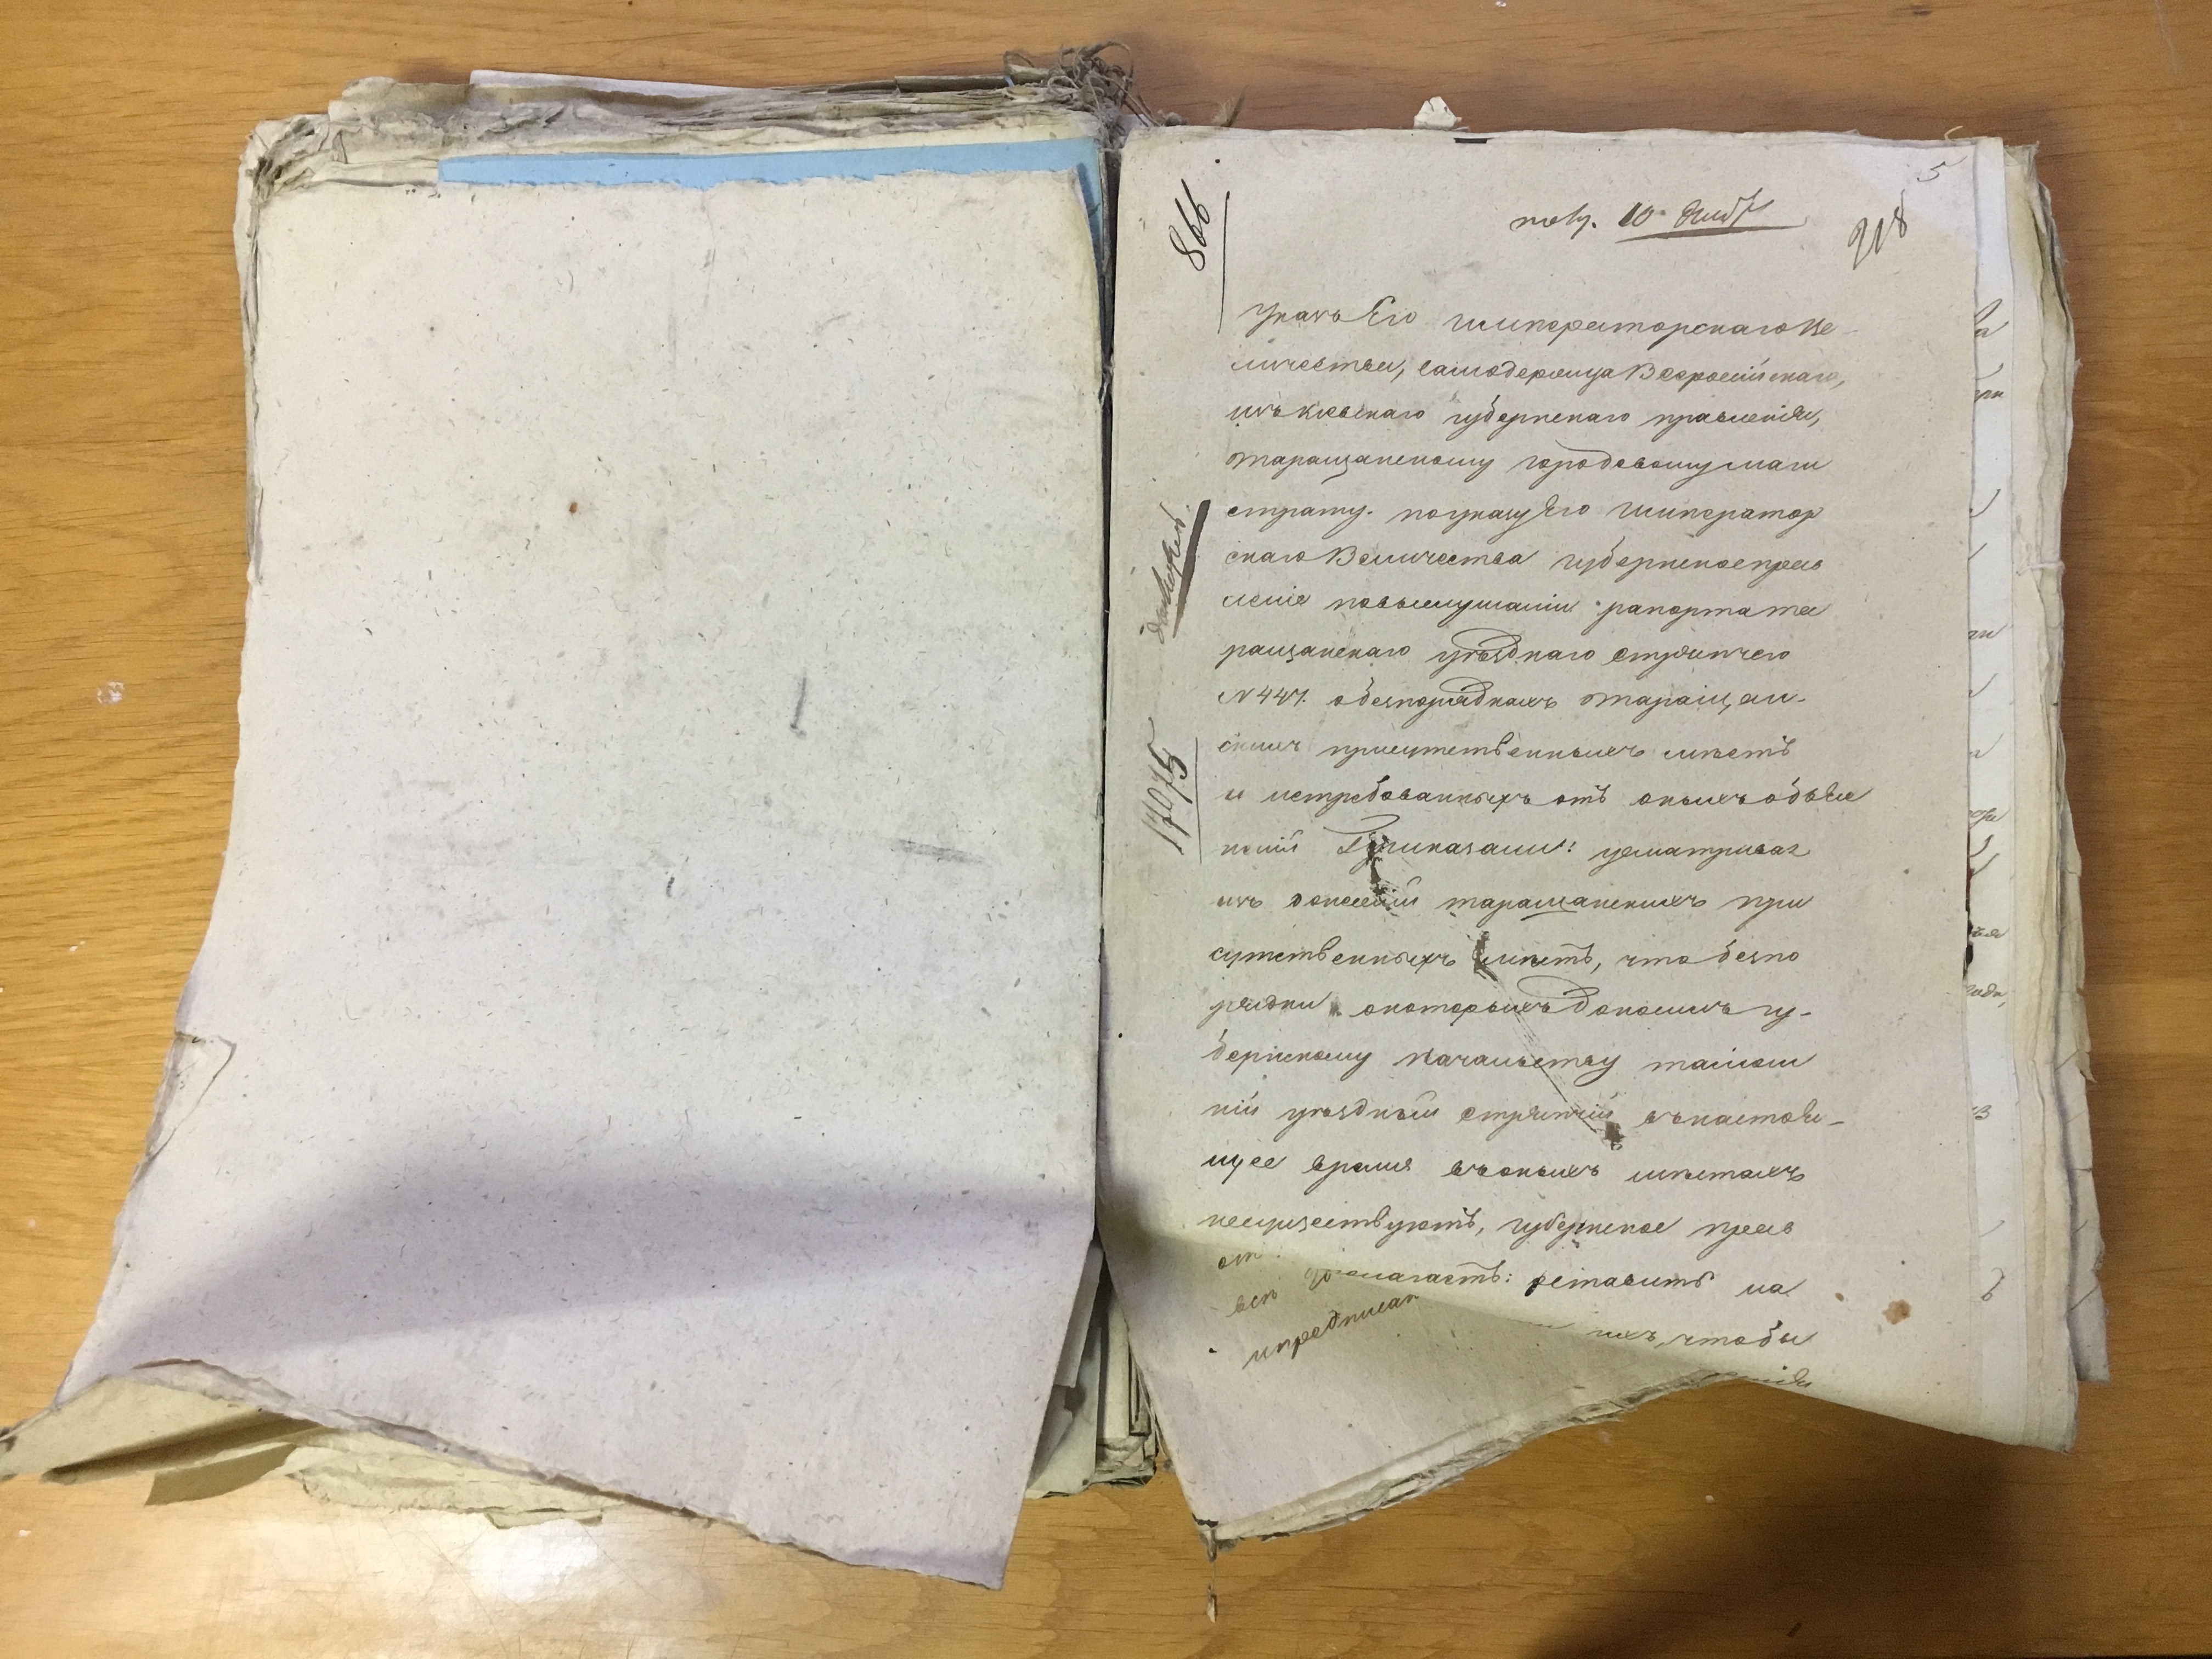 5
пол. 10 Генв
918
866
Указъ Его Императорскаго Ве
личества, Самодержца Всеросійскаго,
изъ Кіевскаго губернскаго правленія,
Таращанскому городовому маги
страту. По указу Его Император
скаго Величества губернское прав
леніе по выслушаніи рапорта та
ращанскаго уезднаго стряпчего
N 447. о безпорядкахъ Таращан-
скихъ присутственныхъ местъ
17075
и истребованныхъ отъ оныхъ объяс
неній Приказали: усматривая
изъ донесеній таращанскихъ при
сутственныхъ местъ, что безпо
рядки о которыхъ доносилъ гу-
бернскому начальству тамош
ній уездный стряпчій въ настоя-
щее время въ оныхъ местахъ
несуществуютъ, губернское прав
полагаетъ: оставить на
предписан ихъ, чтобы